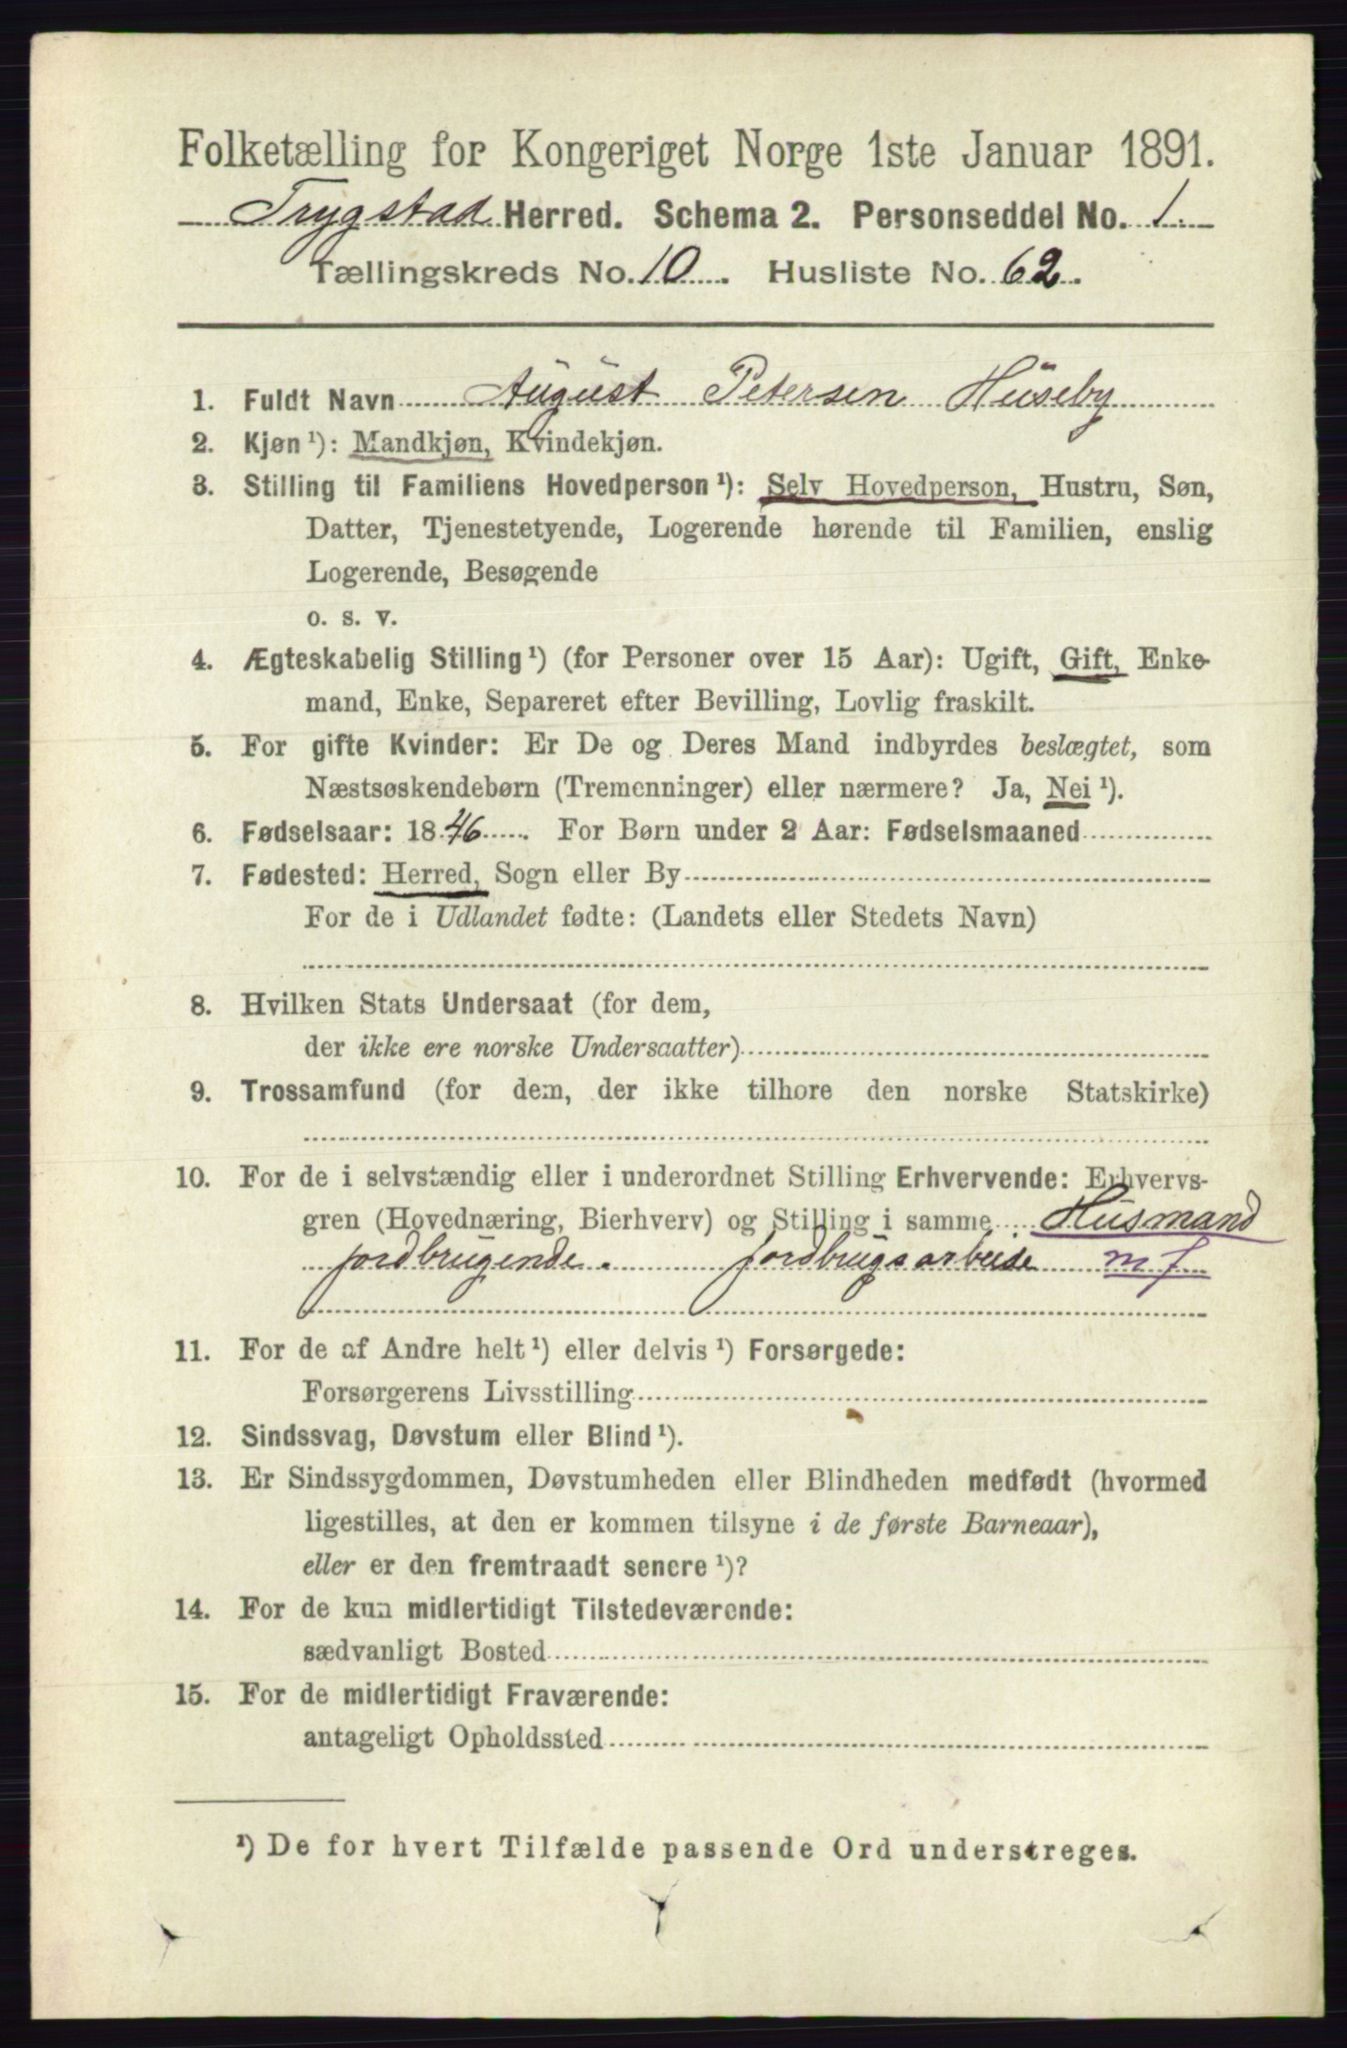 Folketælling for Kongeriget Norge 1ste Januar 1891.
Trygstad Herred. Schema 2. Personseddel No. 1.
Tællingskreds No. 10. Husliste No. 62.
1. Fuldt Navn August Petersen Huseby
2. Kjøn ¹): Mandkjøn, Kvindekjøn.
3. Stilling til Familiens Hovedperson ¹): Selv Hovedperson, Hustru, Søn,
Datter, Tjenestetyende, Logerende hørende til Familien, enslig
Logerende, Besøgende
o. s. v.
4. Ægteskabelig Stilling ¹) (for Personer over 15 Aar): Ugift, Gift, Enke-
mand, Enke, Separeret efter Bevilling, Lovlig fraskilt.
5. For gifte Kvinder: Er De og Deres Mand indbyrdes beslægtet, som
Næstsøskendebørn (Tremenninger) eller nærmere? Ja, Nei ¹).
6. Fødselsaar: 1846. For Børn under 2 Aar: Fødselsmaaned
7. Fødested: Herred, Sogn eller By
For de i Udlandet fødte: (Landets eller Stedets Navn)
8. Hvilken Stats Undersaat (for dem,
der ikke ere norske Undersaatter)
9. Trossamfund (for dem, der ikke tilhøre den norske Statskirke)
10. For de i selvstændig eller i underordnet Stilling Erhvervende: Erhvervs-
gren (Hovednæring, Bierhverv) og Stilling i samme Husmand
jordbrugende. jordbrugsarbeide m f
11. For de af Andre helt ¹) eller delvis ¹) Forsørgede:
Forsørgerens Livsstilling
12. Sindssvag, Døvstum eller Blind ¹).
13. Er Sindssygdommen, Døvstumheden eller Blindheden medfødt (hvormed
ligestilles, at den er kommen tilsyne i de første Barneaar),
eller er den fremtraadt senere ¹)?
14. For de kun midlertidigt Tilstedeværende:
sædvanligt Bosted
15. For de midlertidigt Fraværende:
antageligt Opholdssted
¹) De for hvert Tilfælde passende Ord understreges.